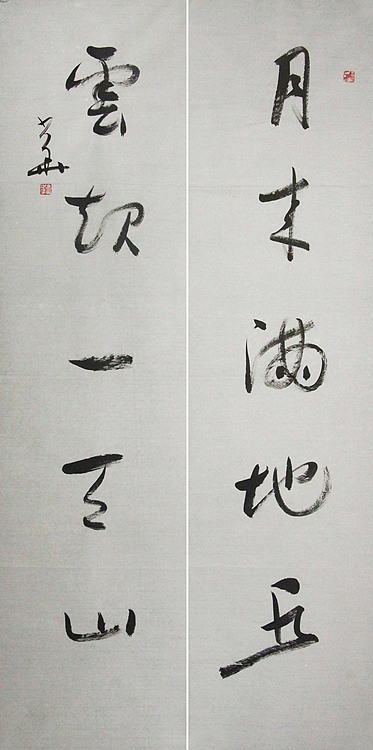 月来满地水
雲起一天山